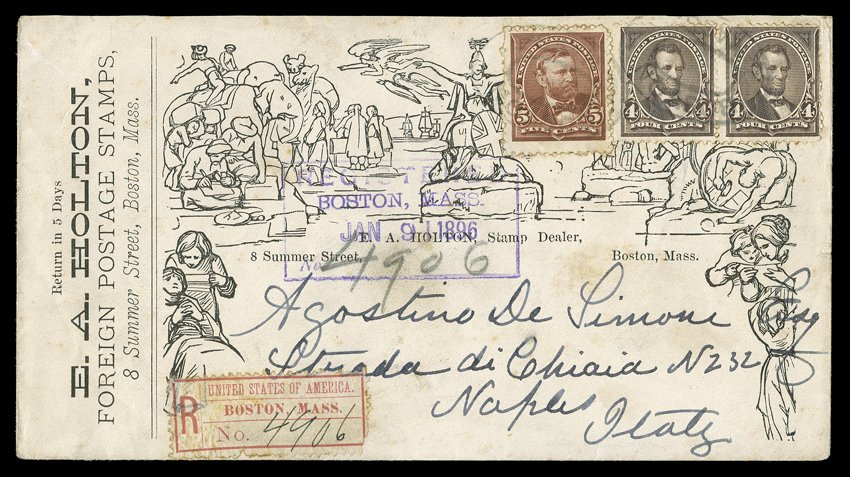 Return in 5 Days
E. A. HOLTON,
FOREIGN POSTAGE STAMPS,
8 Summer Street, Boston, Mass.
UNITED STATES POSTAGE
5 5
FIVE CENTS
UNITED STATES POSTAGE
4 4
FOUR CENTS
UNITED STATES POSTAGE
4 4
FOUR CENTS
REGISTERED
BOSTON, MASS.
JAN 9 1896
No. 4906
E. A. HOLTON, Stamp Dealer,
8 Summer Street, Boston, Mass.
Agostino De Simone Esq
Strada di Chiaia N 232
Naples
Italy
UNITED STATES OF AMERICA.
R BOSTON, MASS.
No. 4906